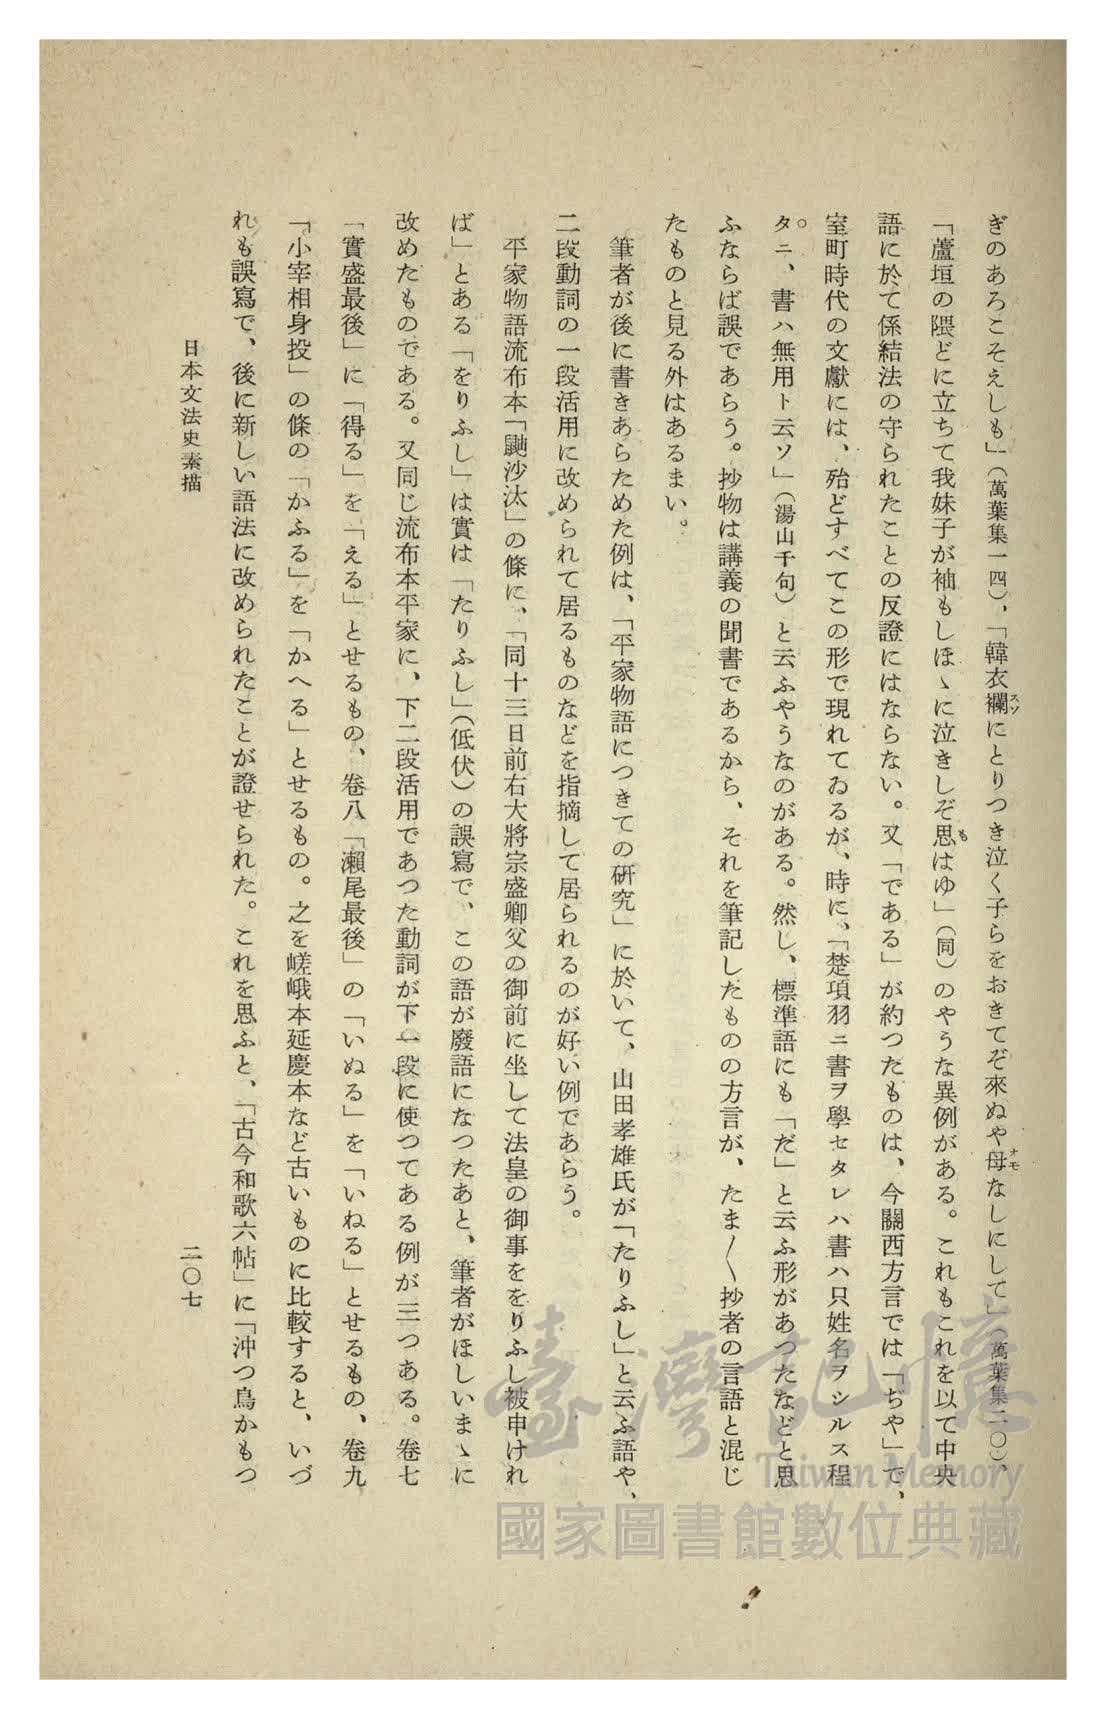 ぎのあろこそえしも」（萬葉集一四）、「韓衣襴にとりつき泣く子らをおきてぞ來ぬや母なしにして」（萬葉集二〇）、
スソ
オモ
「蘆垣の隈どに立ちて我妹子が袖もしほゝに泣きしぞ思はゆ」（同）のやうな異例がある。これもこれを以て中央
も
語に於て係結法の守られたことの反證にはならない。又「である」が約つたものは、今關西方言では「ぢや」で、
室町時代の文獻には、殆どすべてこの形で現れてゐるが、時に、「楚項羽ニ書ヲ學セタレハ書ハ只姓名ヲシルス程
タニ、書ハ無用ト云ソ」（湯山千句）と云ふやうなのがある。然し、標準語にも「だ」と云ふ形があつたなどと思
ふならば誤であらう。抄物は講義の聞書であるから、それを筆記したものの方言が、たま〱抄者の言語と混じ
たものと見る外はあるまい。
筆者が後に書きあらためた例は、「平家物語につきての研究」に於いて、山田孝雄氏が「たりふし」と云ふ語や、
二段動詞の一段活用に改められて居るものなどを指摘して居られるのが好い例であらう。
平家物語流布本「鼬沙汰」の條に、「同十三日前右大將宗盛卿父の御前に坐して法皇の御事ををりふし被申けれ
ば」とある「をりふし」は實は「たりふし」（低伏）の誤寫で、この語が廢語になつたあと、筆者がほしいまゝに
改めたものである。又同じ流布本平家に、下二段活用であつた動詞が下一段に使つてある例が三つある。卷七
「實盛最後」に「得る」を「える」とせるもの、卷八「瀨尾最後」の「いぬる」を「いねる」とせるもの、卷九
「小宰相身投」の條の「かふる」を「かへる」とせるもの。之を嵯峨本延慶本など古いものに比較すると、いづ
れも誤寫で、後に新しい語法に改められたことが證せられた。これを思ふと、「古今和歌六帖」に「沖つ鳥かもつ
日本文法史素描
二〇七
臺灣記憶
Taiwan Memory
國家圖書館數位典藏